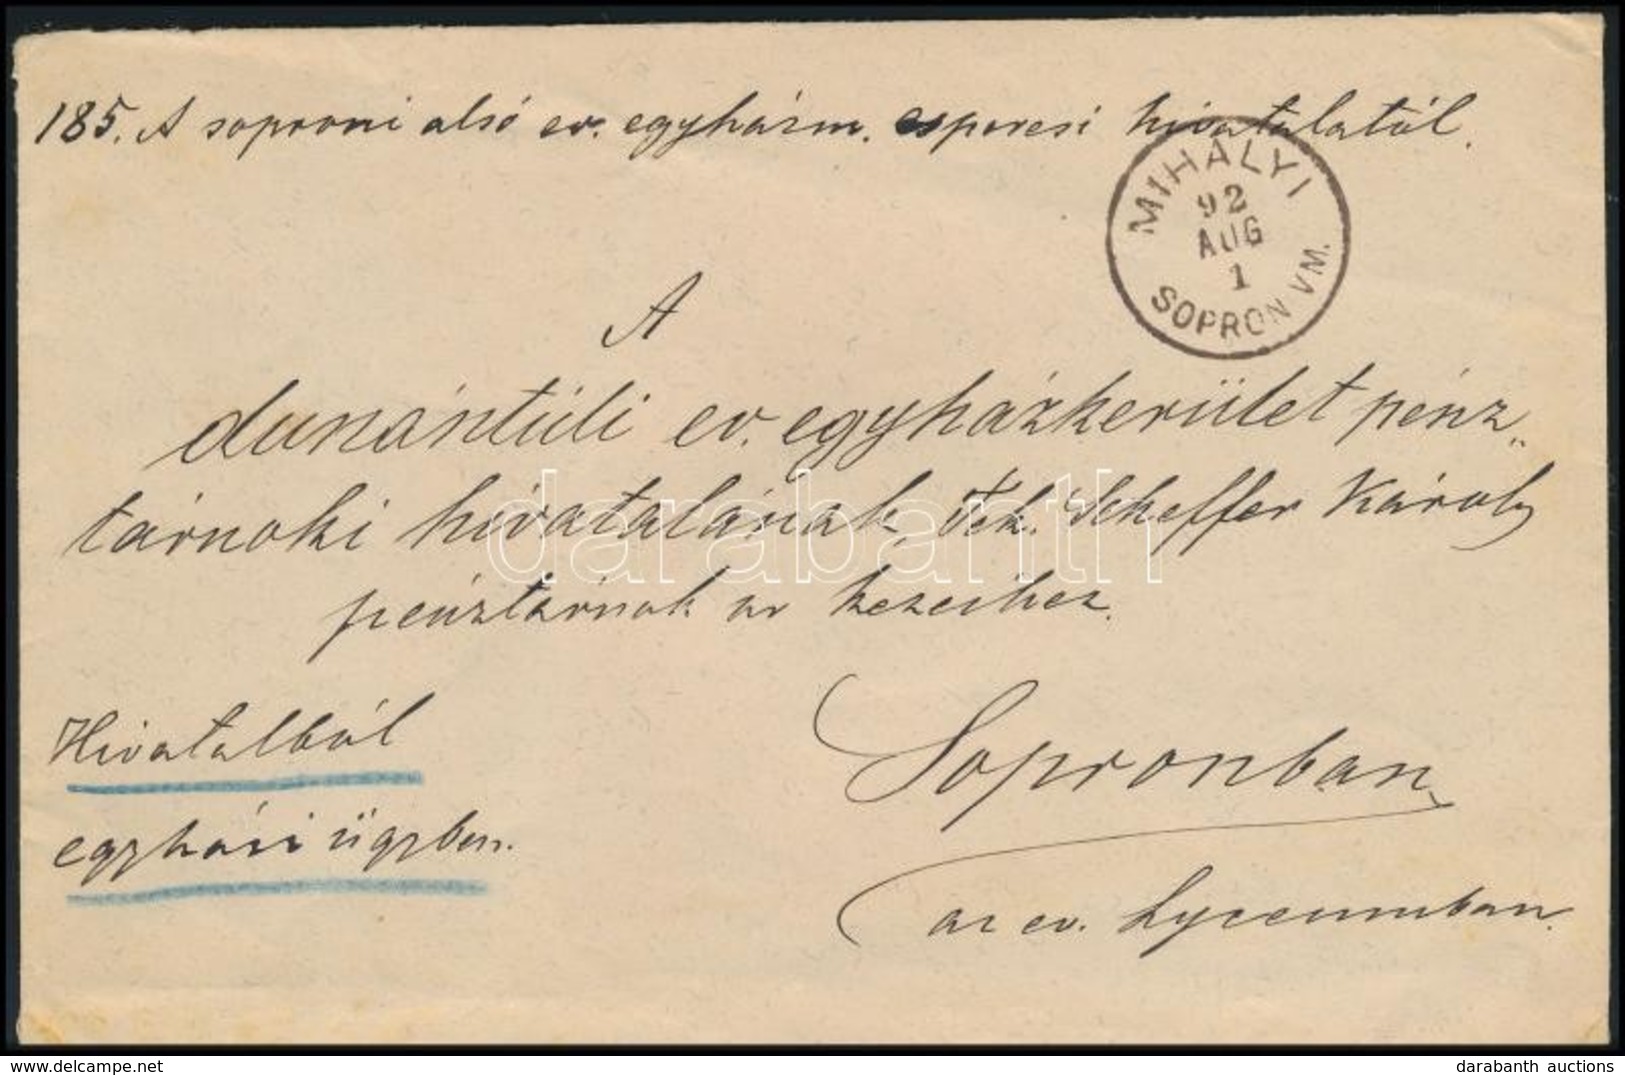 185. A soproni alsó ev. egyházm. esperesi hivatalatól.
MIHÁLYI
92
AUG
1
SOPRON VM.
A
dunántúli ev. egyházkerület pénz„
tárnoki hivatalának, Tek. Scheffer Károly
pénztárnok úr kezeihez.
Hivatalból
egyházi ügyben.
Sopronban
az ev. Lyceumban.
darabanth
darabanth auctions